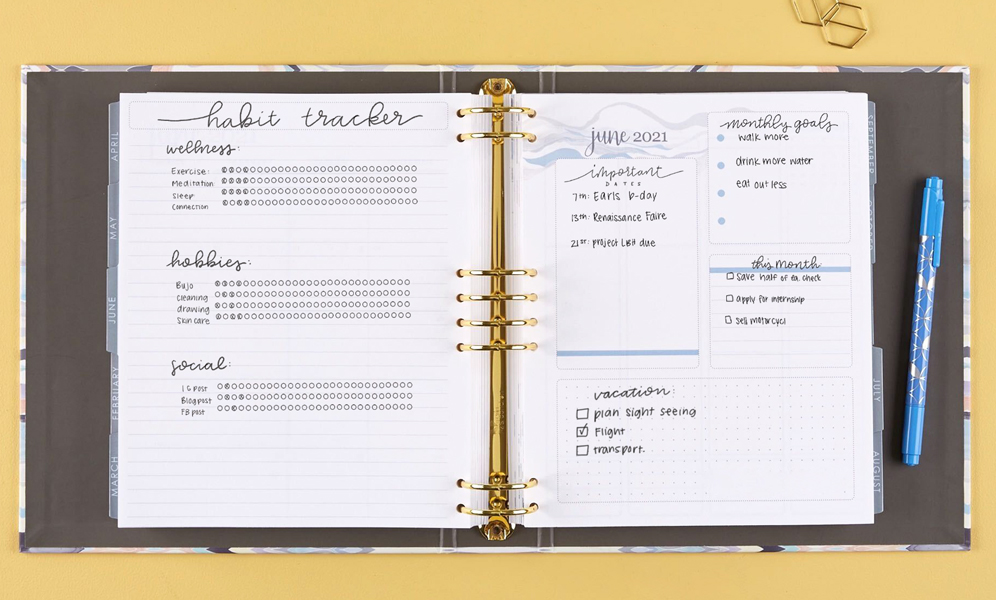 habit tracker
wellness:
Exercise:
Meditation
Sleep
Connection
hobbies:
Bujo
cleaning
drawing
Skin care
social:
IG post
Blog post
FB post
APRIL
MAY
JUNE
FEBRUARY
MARCH
june 2021
important
DATES
7th: Earls b-day
13th: Renaissance Faire
21st: project LBH due
monthly goals
walk more
drink more water
eat out less
this month
Save half of ea. check
apply for internship
sell motorcycl
vacation:
plan sight seeing
Flight
transport.
SEPTEMBER
OCTOBER
JULY
AUGUST